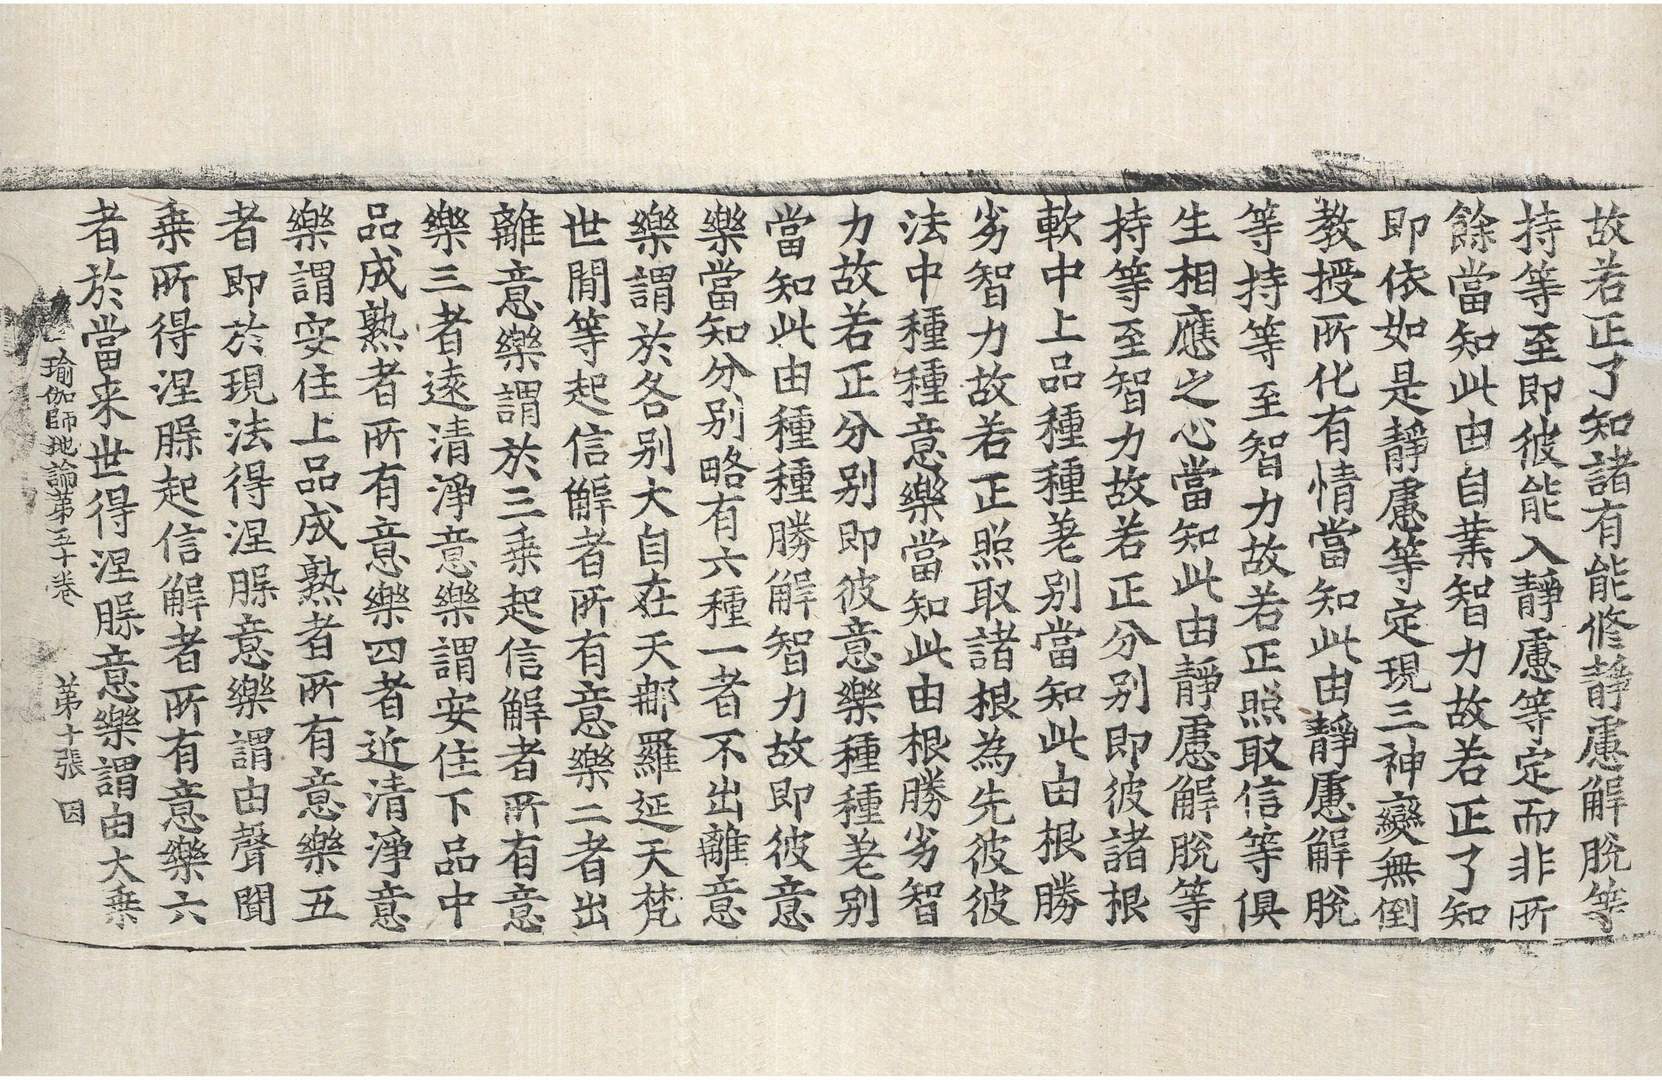 故若正了知諸有能修靜慮解脫等
持等至即彼能入靜慮等定而非所
餘當知此由自業智力故若正了知
即依如是靜慮等定現三神變無倒
教授所化有情當知此由靜慮解脫
等持等至智力故若正照取信等俱
生相應之心當知此由靜慮解脫等
持等至智力故若正分別即彼諸根
軟中上品種種差別當知此由根勝
劣智力故若正照取諸根為先彼彼
法中種種意樂當知此由根勝劣智
力故若正分別即彼意樂種種差別
當知此由種種勝解智力故即彼意
樂當知分別略有六種一者不出離意
樂謂於各別大自在天那羅延天梵
世間等起信解者所有意樂二者出
離意樂謂於三乘起信解者所有意
樂三者遠清淨意樂謂安住下品中
品成熟者所有意樂四者近清淨意
樂謂安住上品成熟者所有意樂五
者即於現法得涅槃意樂謂由聲聞
乘所得涅槃起信解者所有意樂六
者於當来世得涅槃意樂謂由大乘
瑜伽師地論第五十卷 第十張 因